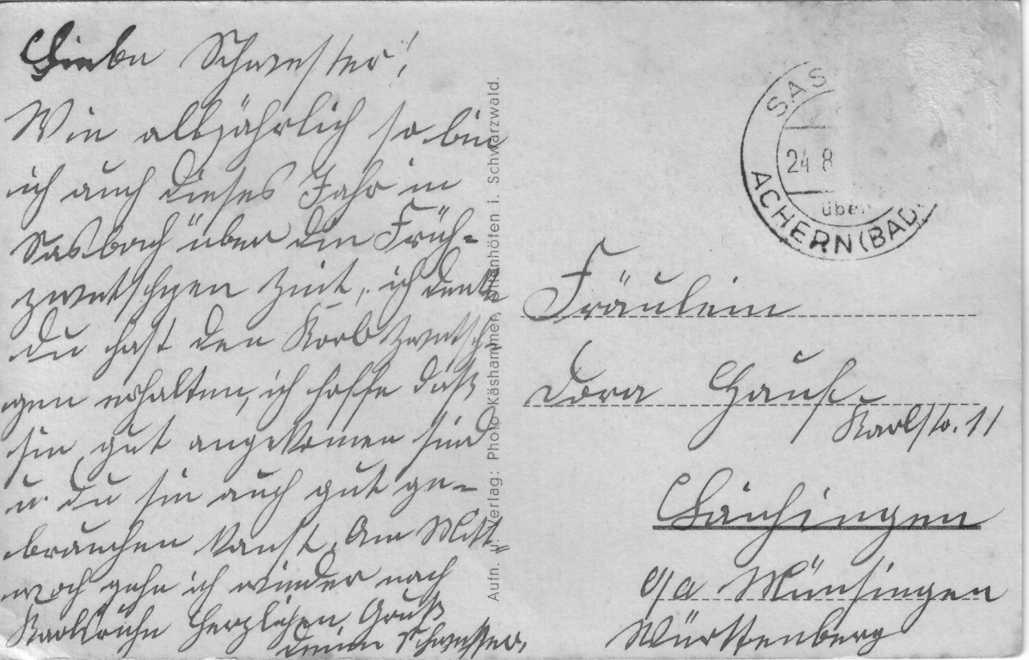 Liebe Schwester!
Wie alljährlich so bin
ich auch dieses Jahr in
Sasbach über die Früh-
zwetschgen Zeit, ich denke
du hast den Korb Zwetsch-
gen erhalten, ich hoffe daß
sie gut angekomen sind
u. du sie auch gut ge-
brauchen kanst, Am Mitt-
woch gehe ich wieder nach
Karlsruhe Herzlichen Gruß
deine Schwester.
Aufn. u. Verlag: Photo-Käshammer, i. Schwarzwald.
SAS
24 8
über
ACHERN (BAD)
Fräulein
Dora
Karlstr. 11
Laichingen
O/a Münsingen
Württenberg